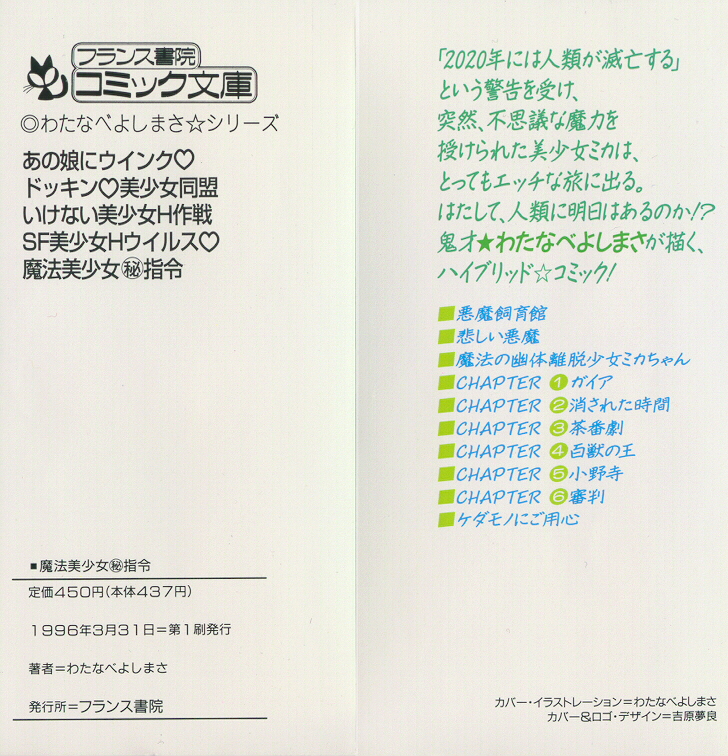 フランス書院
コミック文庫
◎わたなべよしまさ☆シリーズ
あの娘にウインク♡
ドッキン♡美少女同盟
いけない美少女H作戦
SF美少女Hウイルス♡
魔法美少女㊙指令
■魔法美少女㊙指令
定価450円(本体437円)
1996年3月31日=第1刷発行
著者=わたなべよしまさ
発行所=フランス書院
「2020年には人類が滅亡する」
という警告を受け、
突然、不思議な魔力を
授けられた美少女ミカは、
とってもエッチな旅に出る。
はたして、人類に明日はあるのか!?
鬼才★わたなべよしまさが描く、
ハイブリッド☆コミック!
■悪魔飼育館
■悲しい悪魔
■魔法の幽体離脱少女ミカちゃん
■CHAPTER ①ガイア
■CHAPTER ②消された時間
■CHAPTER ③茶番劇
■CHAPTER ④百獣の王
■CHAPTER ⑤小野寺
■CHAPTER ⑥審判
■ケダモノにご用心
カバー・イラストレーション=わたなべよしまさ
カバー&ロゴ・デザイン=吉原夢良